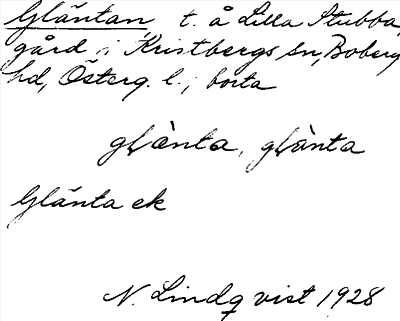 Gläntan t. å Lilla Stubba,
gård i Kristbergs sn, Boberg
hd, Österg. l.; borta
glànta, glànta
Glänta ek
N. Lindqvist 1928